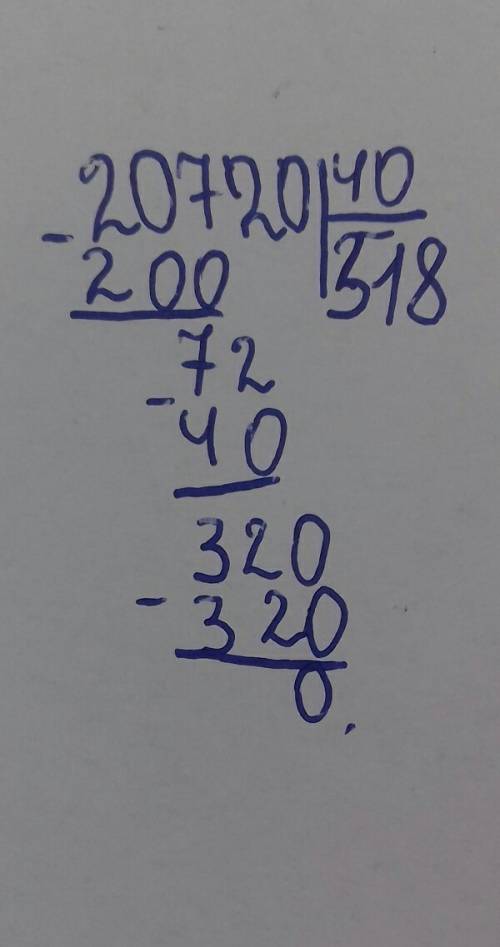 20720 40
- 200 518
72
- 40
320
- 320
0.